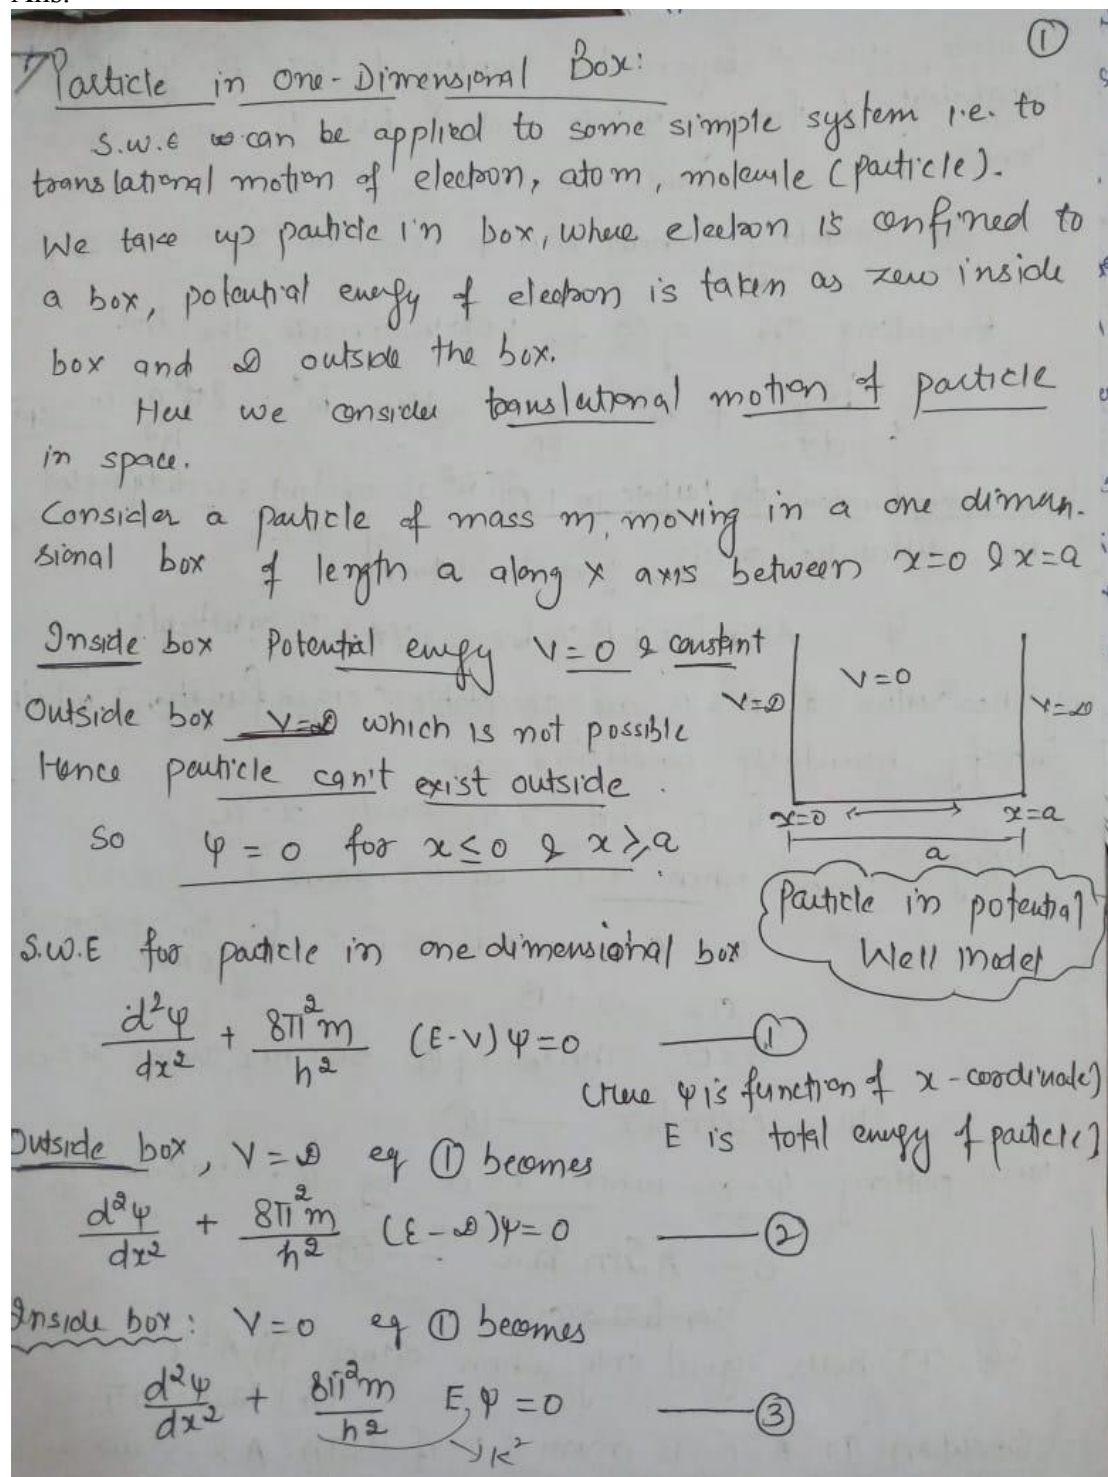 Ans.
①
Particle in One-Dimensional Box:
S.W.E can be applied to some simple system i.e. to
translational motion of electron, atom, molecule (particle).
We take up particle in box, where electron is confined to
a box, potential energy of electron is taken as zero inside
box and ∞ outside the box.
Here we consider translational motion of particle
in space.
Consider a particle of mass m, moving in a one dimen-
sional box of length a along x axis between x=0 & x=a
Inside box Potential energy V=0 & constant
Outside box V=∞ which is not possible
Hence particle can't exist outside.
So ψ = 0 for x≤0 & x≥a
V=∞ V=0 V=∞
x=0 x=a
a
Particle in potential
Well model
S.W.E for particle in one dimensional box
d²ψ/dx² + 8π²m/h² (E-V)ψ=0 —— ①
(Here ψ is function of x-coordinate)
E is total energy of particle)
Outside box, V=∞ eq ① becomes
d²ψ/dx² + 8π²m/h² (E-∞)ψ=0 —— ②
Inside box: V=0 eq ① becomes
d²ψ/dx² + 8π²m/h² E, ψ = 0 —— ③
k²